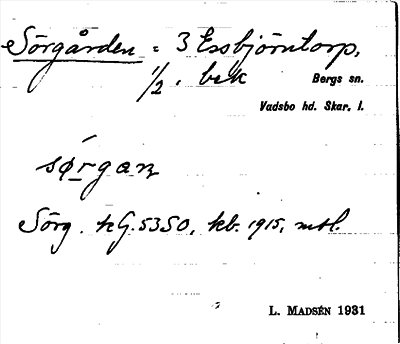 Sörgården = 3 Essbjörntorp,
1/2, bek
Bergs sn.
Vadsbo hd. Skar. l.
sø̨rgan
Sörg. hG. 53SO, kb. 1915, mtl.
L. MADSÉN 1931